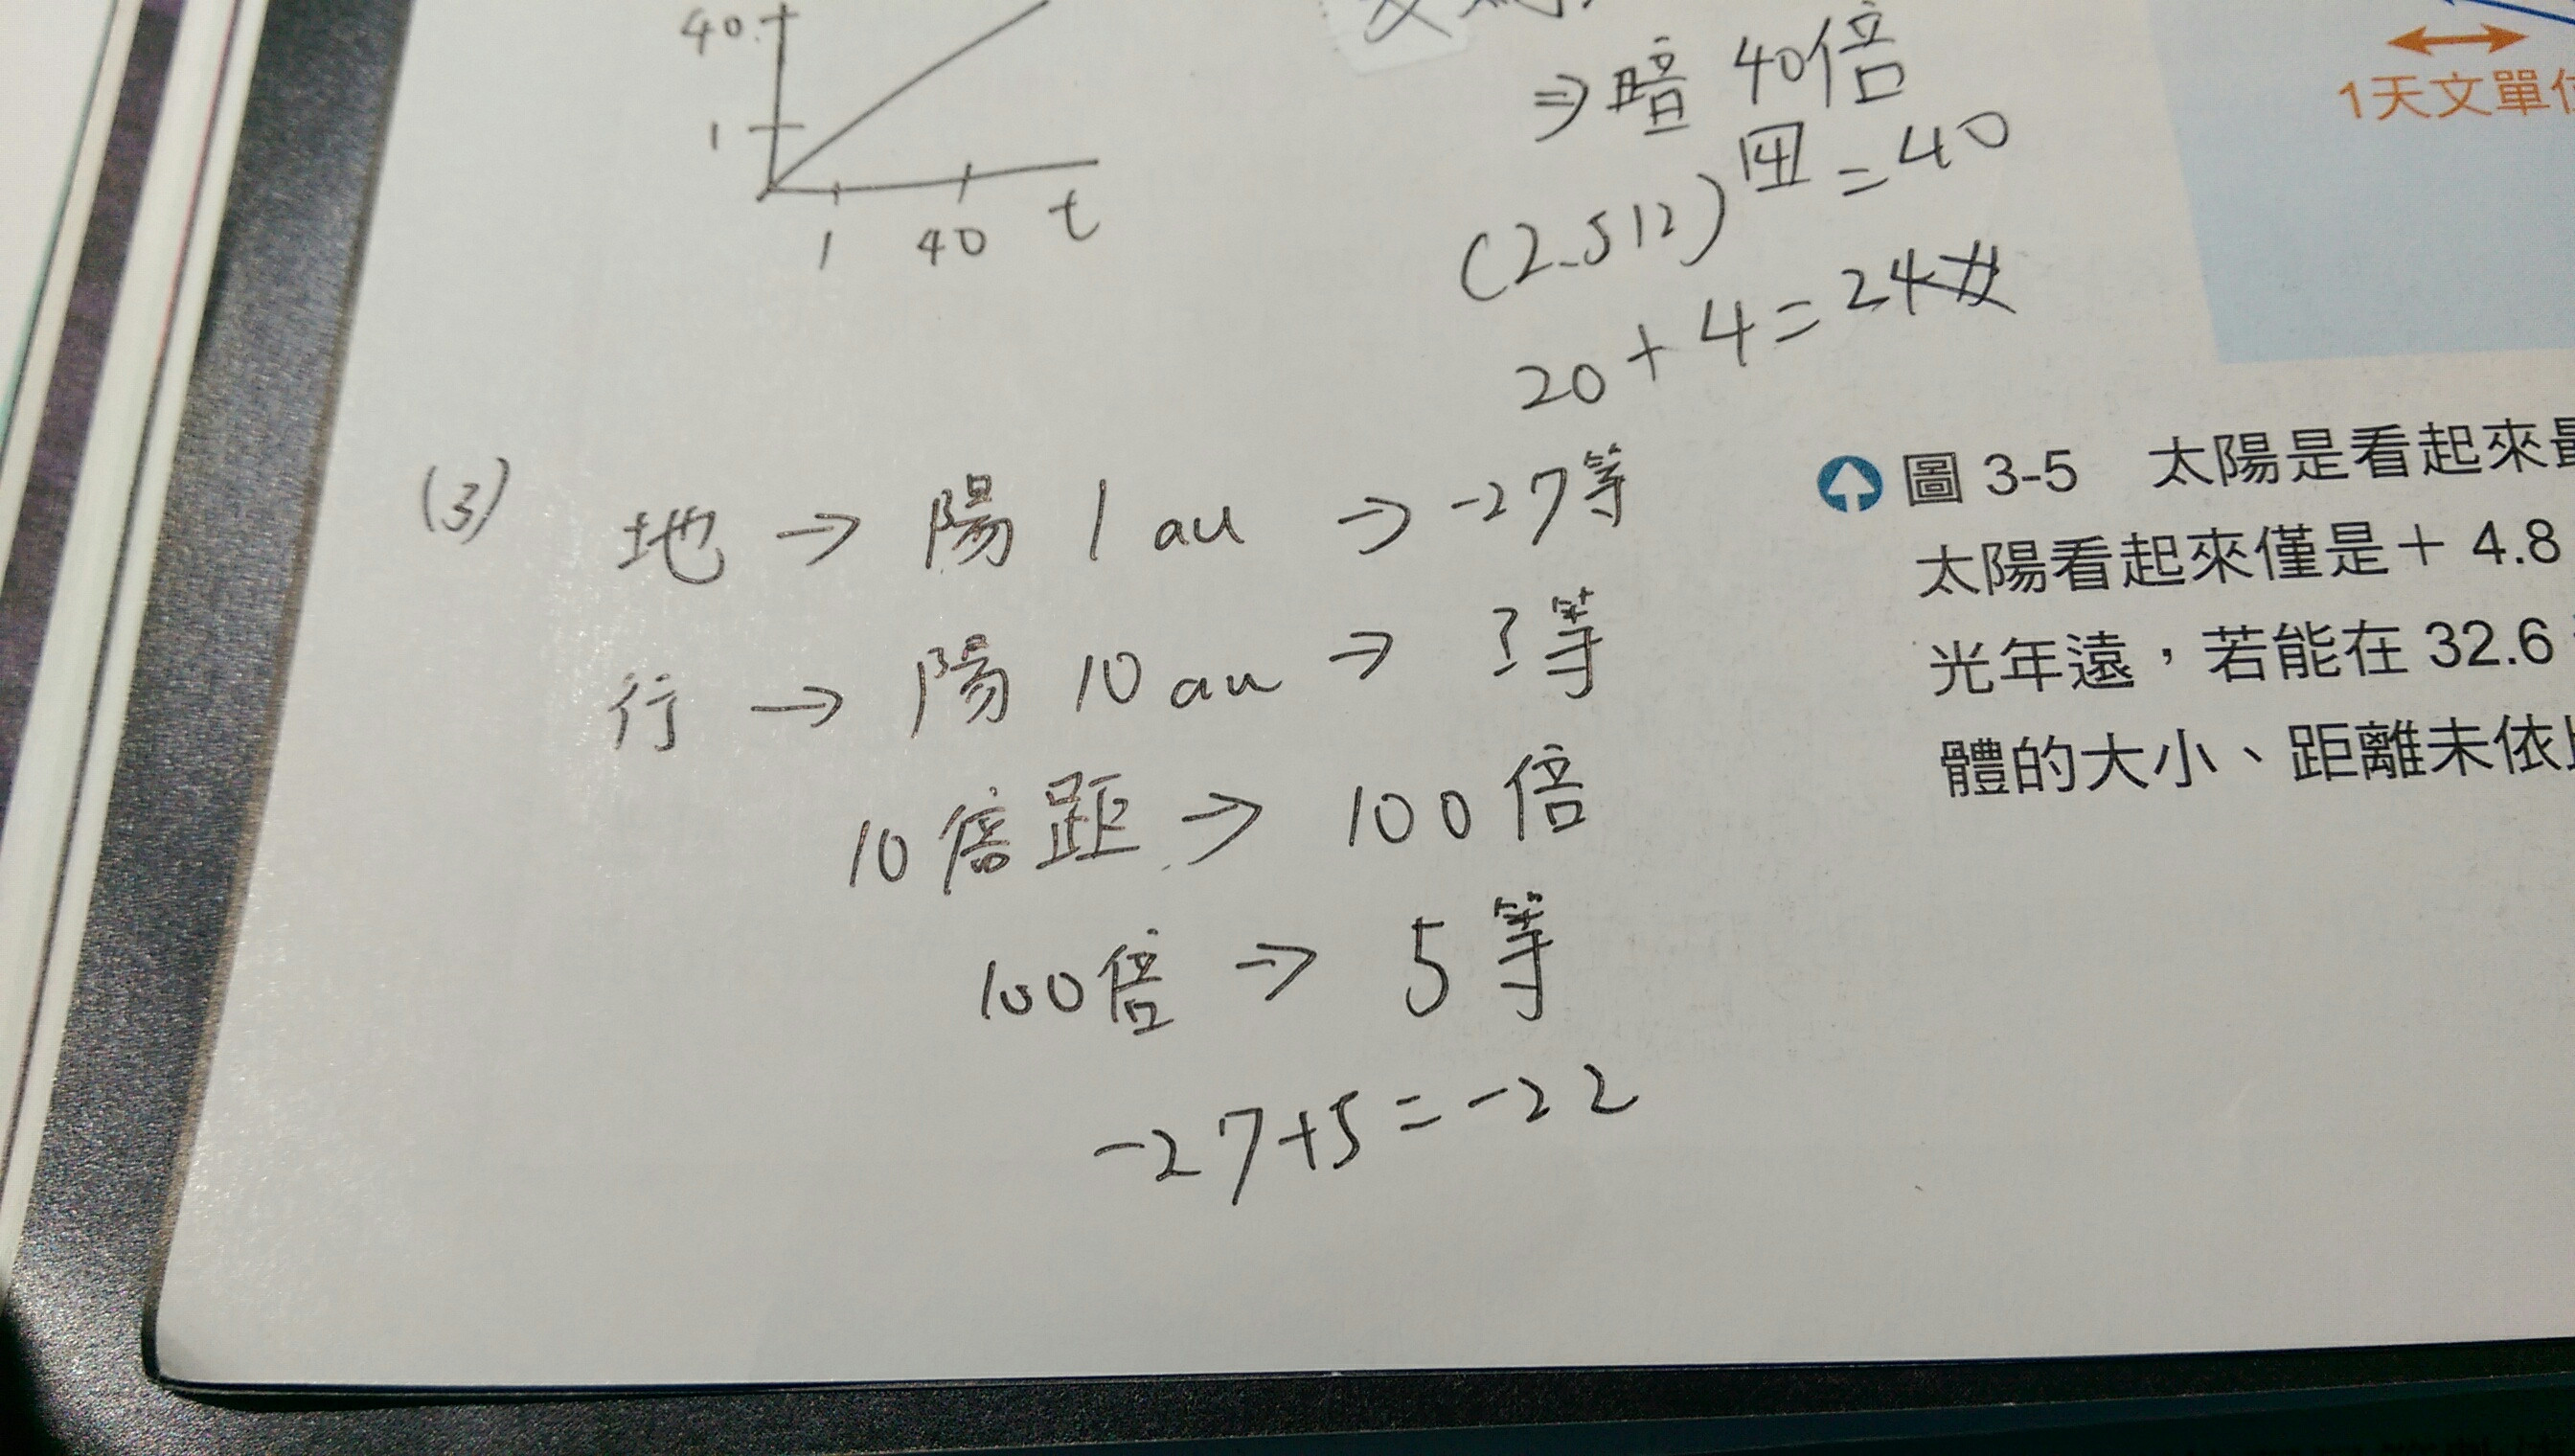 40
1
1 40 t
⇒ 暗 40倍
(2.512)^4 = 40
20 + 4 = 24
(3)
地 → 陽 1 au → -27等
行 → 陽 10 au → ?等
10倍距 → 100倍
100倍 → 5等
-27+5=-22
1天文單
圖 3-5 太陽是看起來
太陽看起來僅是+ 4.8
光年遠,若能在 32.6
體的大小、距離未依